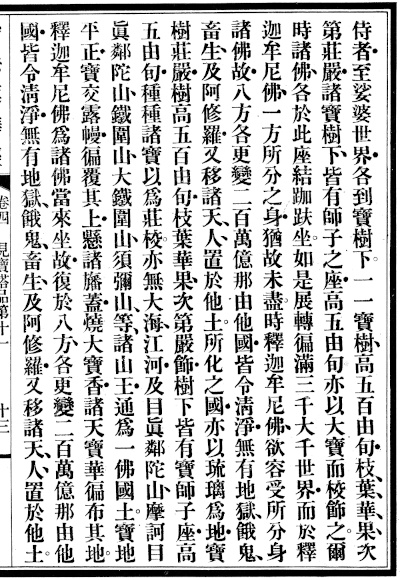 侍者至娑婆世界各到寶樹下一一寶樹高五百由旬枝葉華果次
第莊嚴諸寶樹下皆有師子之座高五由旬亦以大寶而校飾之爾
時諸佛各於此座結跏趺坐如是展轉徧滿三千大千世界而於釋
迦牟尼佛一方所分之身猶故未盡時釋迦牟尼佛欲容受所分身
諸佛故八方各更變二百萬億那由他國皆令清淨無有地獄餓鬼
畜生及阿修羅又移諸天人置於他土所化之國亦以琉璃爲地寶
樹莊嚴樹高五百由旬枝葉華果次第嚴飾樹下皆有寶師子座高
五由旬種種諸寶以爲莊校亦無大海江河及目眞鄰陀山摩訶目
眞鄰陀山鐵圍山大鐵圍山須彌山等諸山王通爲一佛國土寶地
平正寶交露幔徧覆其上懸諸旛蓋燒大寶香諸天寶華徧布其地
釋迦牟尼佛爲諸佛當來坐故復於八方各更變二百萬億那由他
國皆令清淨無有地獄餓鬼畜生及阿修羅又移諸天人置於他土
卷四 見寶塔品第十一 十三